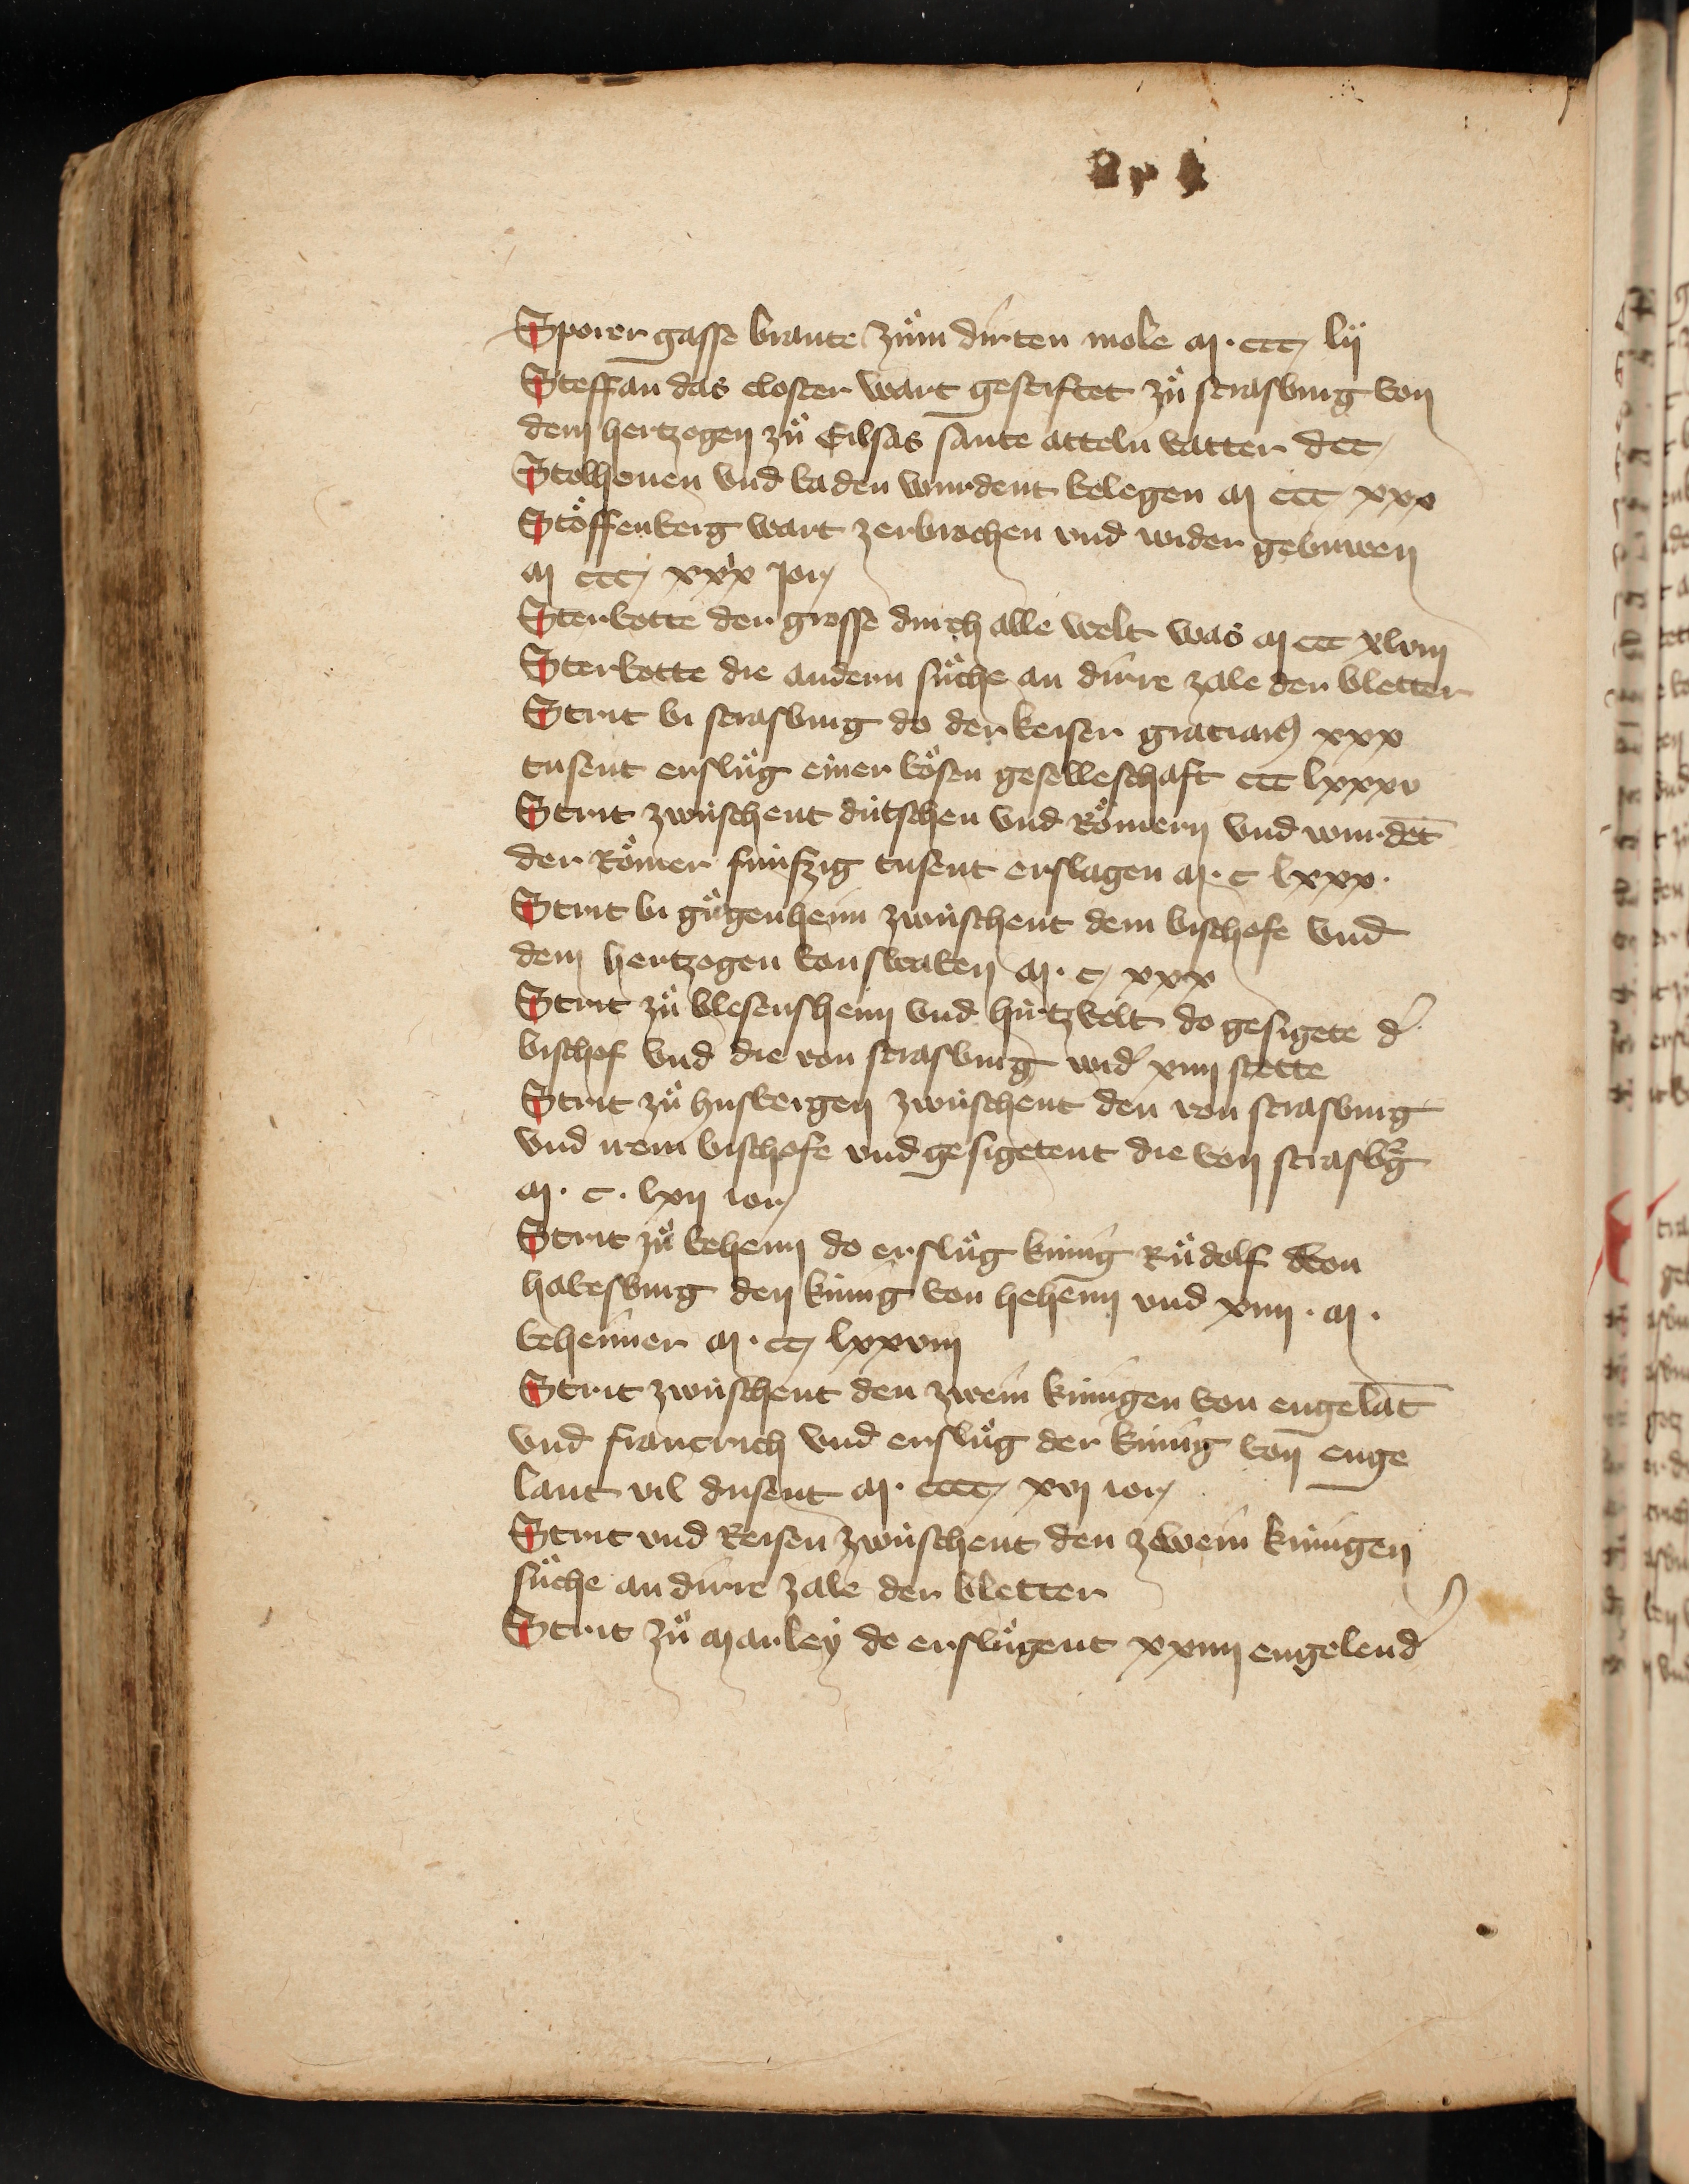 Sporer gasse brante zuͦm dirten mole M · ccc lij
Steffan das closter wart gestiftet zuͦ strasburg von
dem hertzogen zuͦ Eilsas sante attelin vatter dcc
Stolhouen vnd baden wurdent belegen M ccc xxx
Stoͤffenberg wart zerbrochen vnd wider gebuwen
M ccc xxx jor
Sterbotte der grosse durch alle welt was M ccc xlviij
Sterbotte die andern suͤche an dirre zale der bletter
Strit bi strasburg do der keiser gracianꝰ xxx
tusent ersluͦg einer boͤsen geselleschaft ccc lxxxv
Strit zwuͤschent duͤtschen vnd Roͤmern vnd wurdēt
der Roͤmer fuͤnfzig tusent erslagen M · c lxxx ·
Strit bi guͦgenheim zwuͤschent dem bischofe vnd
dem hertzogen von swaben M · c xxx
Strit zuͦ blesensheim vnd hirtzvelt do gesigete d̕
bischof vnd die von strasburg wid̕ xiiij stette
Strit zuͦ husbergen zwuͤschent den von strasburg
vnd irem bischofe vnd gesigetent die von strasbᷣg
M · c · lxij ior
Strit zuͦ behem do ersluͦg kuͤnig Ruͦdolf von
habesburg den kuͤnig von behem vnd xiiij · M ·
behemer M · cc lxxviij
Strit zwuͤschent den zwein kuͤnigen von engelāt
vnd francrich vnd ersluͦg der kuͤnig von enge
lant vil dusent M · cccc xvj ior
Strit vnd Reisen zwuͤschent den zwein kuͤnigen
suͤche an dirre zale der bletter
Strit zuͦ Marley do ersluͦgent xxiiij engelend̕